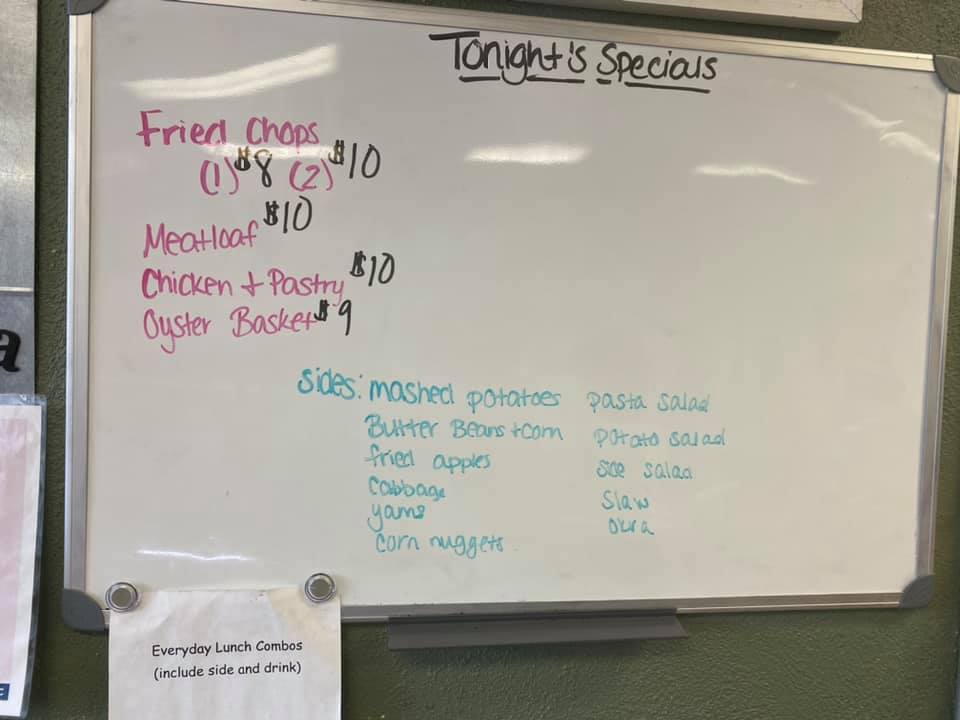 Tonight's Specials
Fried Chops
(1) $8 (2) $10
Meatloaf $10
Chicken + Pastry $10
Oyster Basket $9
Sides: mashed potatoes pasta salad
Butter Beans + corn potato salad
fried apples sde salad
Cabbage Slaw
yams okra
corn nuggets
a
Everyday Lunch Combos
(include side and drink)